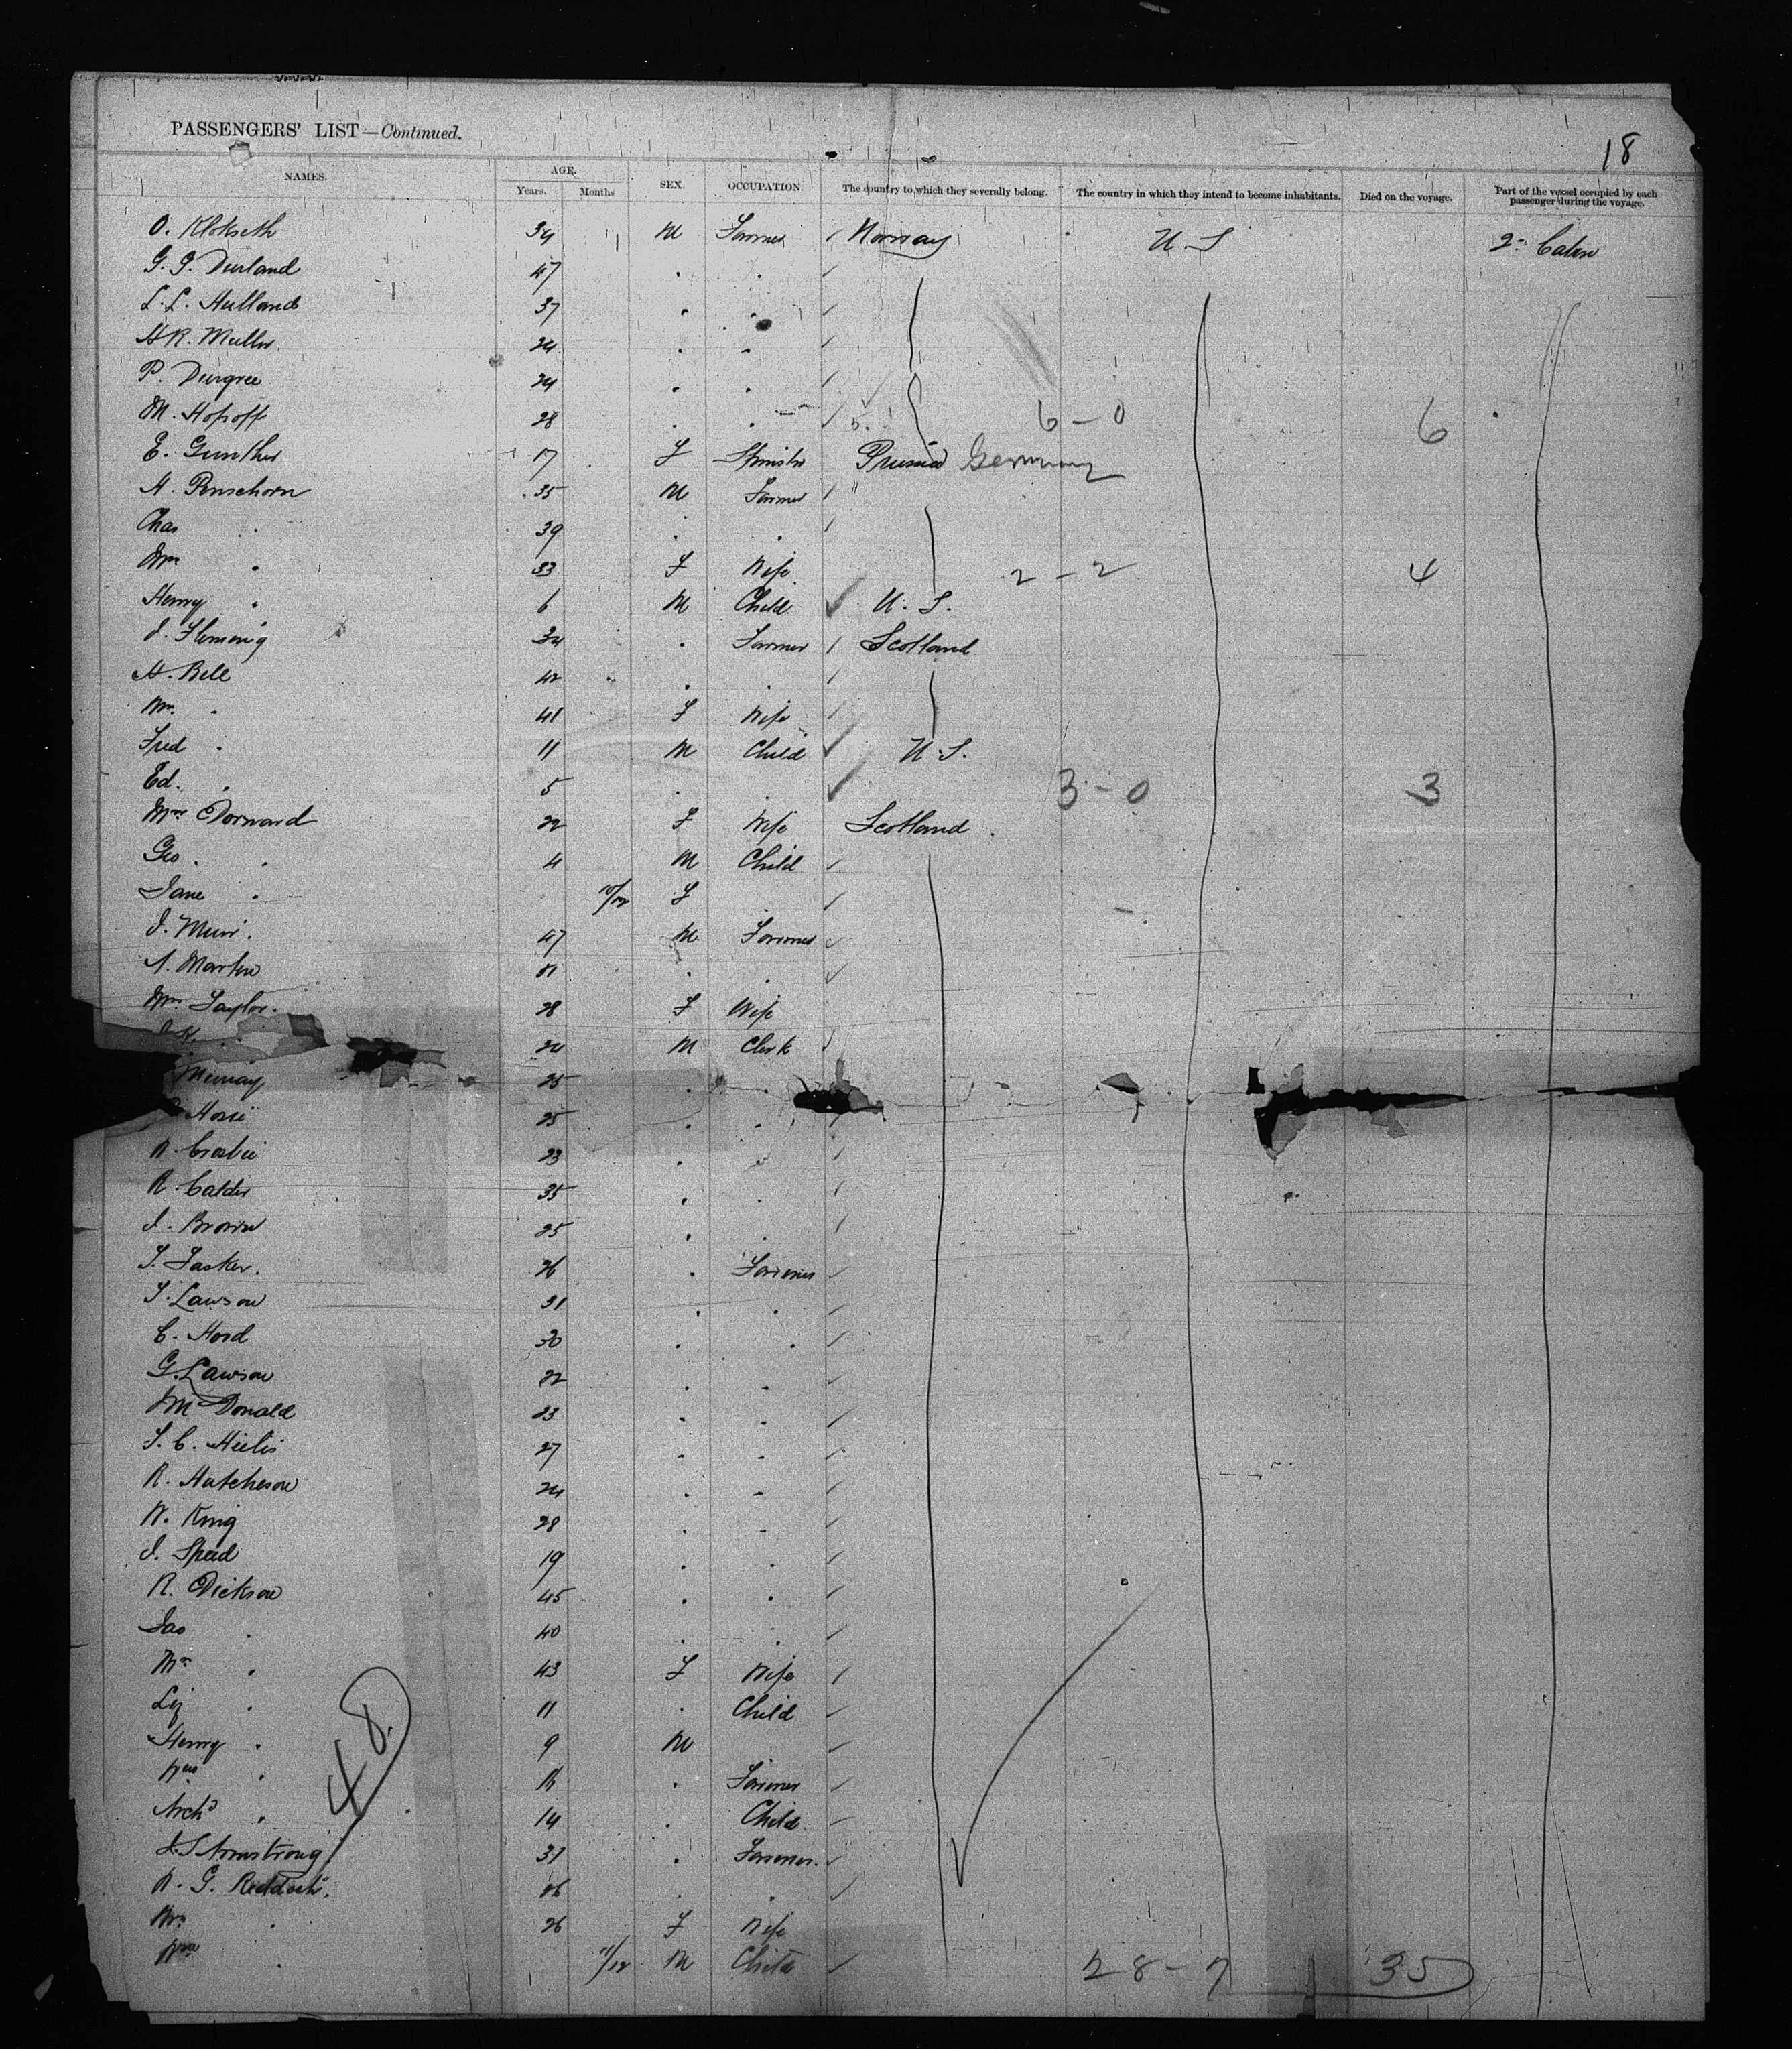 PASSENGERS' LIST—Continued.
18
NAMES. AGE. Years. Months SEX. OCCUPATION. The country to which they severally belong. The country in which they intend to become inhabitants. Died on the voyage. Part of the vessel occupied by each passenger during the voyage.
O. Klokseth 34 M Farmer Norway U S 2nd Cabin
G. G. Durland 47 . .
L. L. Hulland 37 . .
H R. Muller 24 . .
P. Durgree 24 . .
M. Hopoff 28 . . 6-0 6
E. Gunther 17 F Spinster Prussia Germany
H. Penschorn 35 M Farmer "
Chas . 39 . .
Mrs . 33 F Wife 2-2 4
Henry . 6 M Child U. S.
J. Fleming 34 . Farmer Scotland
H. Bell 42 . .
Mrs . 41 F Wife
Fred . 11 M Child U. S.
Ed. . 5 . . 3-0 3
Mrs Dorward 22 F Wife Scotland.
Geo. . 4 M Child
Jane . 10/12 F
J. Muir. 47 M Farmer
A. Martin . .
Mrs Taylor. 28 F Wife
24 M Clerk
Murray 25 . .
Hossie 25 . .
Crosbie 23 . .
R. Calder 35 . .
J. Brown 25 . .
T. Tasker. 26 . Farmer
T. Lawson 31 . .
C. Hord 30 . .
G. Lawson 22 . .
McDonald 23 . .
27 . .
R. Hutcheson 24 . .
W. King 28 . .
J. Speed 19 . .
R. Dickson 45 . .
Jas . 40 . .
Mrs . 43 F Wife
Liz . 11 . Child
Henry . 9 M
Wm . . Farmer
Archd . 14 . Child
J. S Armstrong 31 . Farmer.
48
R. G. Reddoch. 26 . .
Mrs . 26 F Wife
Wm . 11/12 M Child 28-7 35